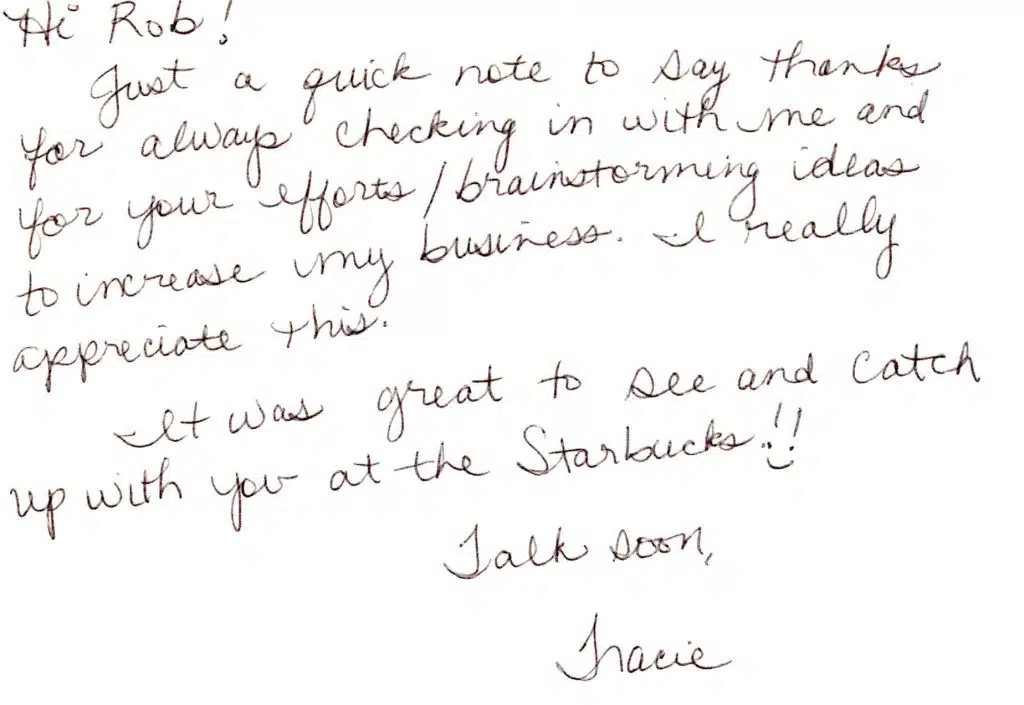 Hi Rob!
Just a quick note to say thanks
for always checking in with me and
for your efforts/brainstorming ideas
to increase my business. I really
appreciate this.
It was great to see and catch
up with you at the Starbucks!!
Talk soon,
Tracie